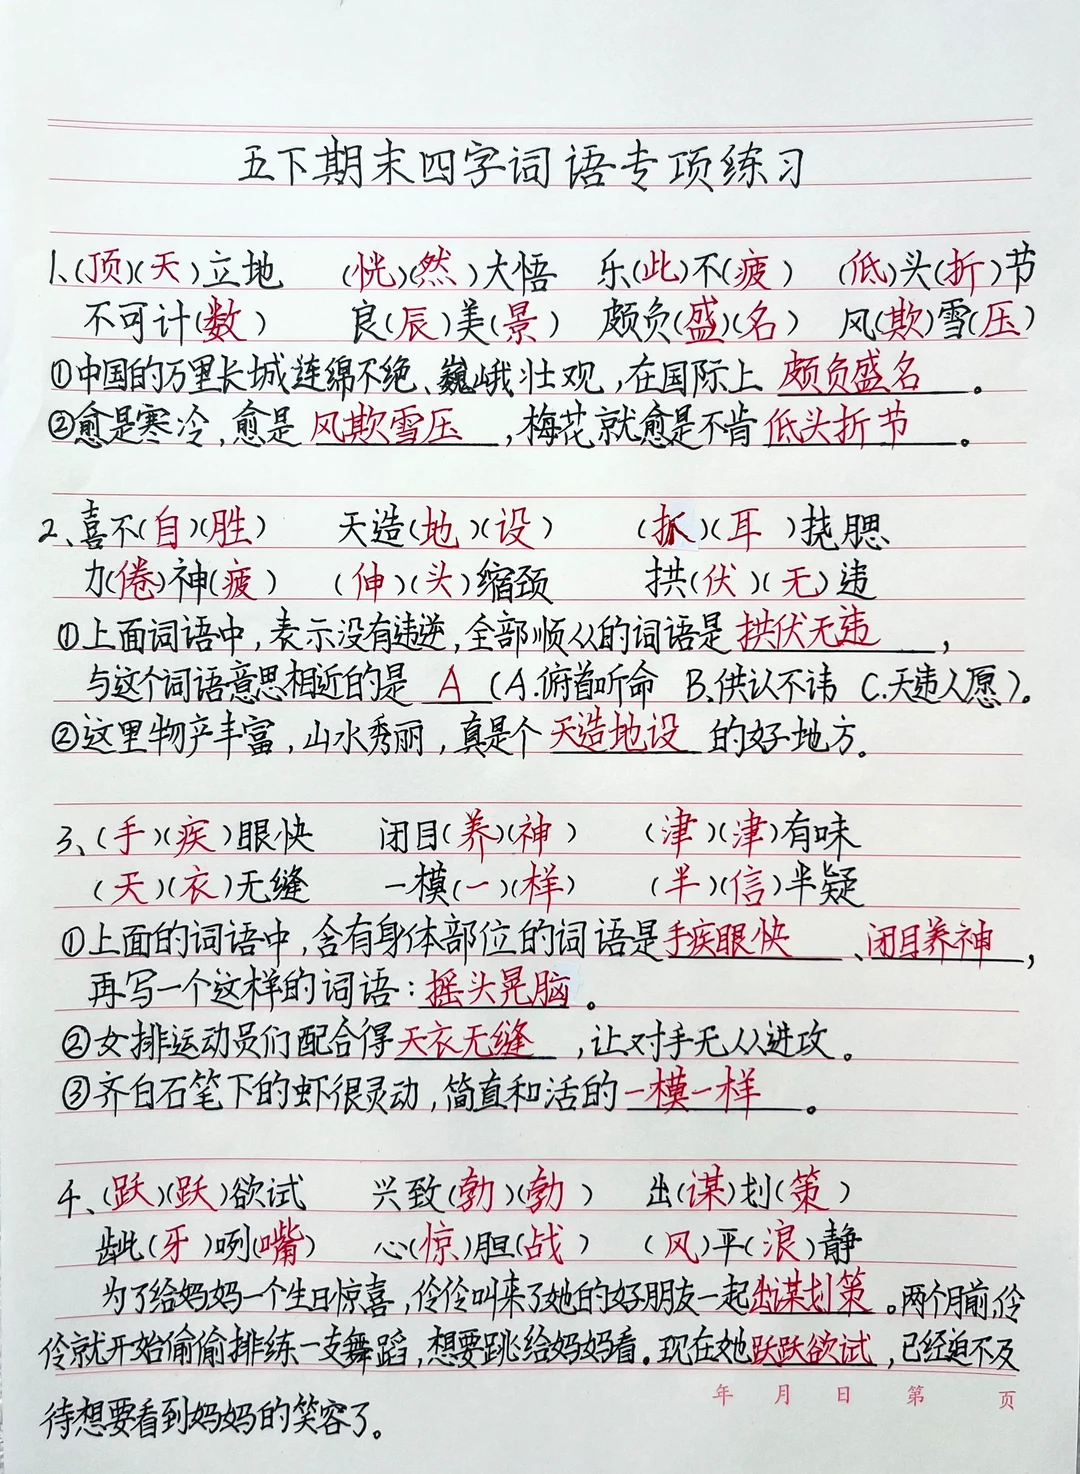 五下期末四字词语专项练习
1、(顶)(天)立地 (恍)(然)大悟 乐(此)不(疲) (低)头(折)节
不可计(数) 良(辰)美(景) 颇负(盛)(名) 风(欺)雪(压)
①中国的万里长城连绵不绝、巍峨壮观,在国际上 颇负盛名。
②愈是寒冷,愈是 风欺雪压,梅花就愈是不肯 低头折节。
2、喜不(自)(胜) 天造(地)(设) (抓)(耳)挠腮
力(倦)神(疲) (伸)(头)缩颈 拱(伏)(无)违
①上面词语中,表示没有违逆,全部顺从的词语是 拱伏无违,
与这个词语意思相近的是 A (A.俯首听命 B.供认不讳 C.天违人愿)。
②这里物产丰富,山水秀丽,真是个 天造地设 的好地方。
3、(手)(疾)眼快 闭目(养)(神) (津)(津)有味
(天)(衣)无缝 一模(一)(样) (半)(信)半疑
①上面的词语中,含有身体部位的词语是 手疾眼快、闭目养神,
再写一个这样的词语:摇头晃脑。
②女排运动员们配合得 天衣无缝,让对手无从进攻。
③齐白石笔下的虾很灵动,简直和活的 一模一样。
4、(跃)(跃)欲试 兴致(勃)(勃) 出(谋)划(策)
龇(牙)咧(嘴) 心(惊)胆(战) (风)平(浪)静
为了给妈妈一个生日惊喜,伶伶叫来了她的好朋友一起出谋划策。两个月前,伶
伶就开始偷偷排练一支舞蹈,想要跳给妈妈看。现在她跃跃欲试,已经迫不及
年 月 日 第 页
待想要看到妈妈的笑容了。